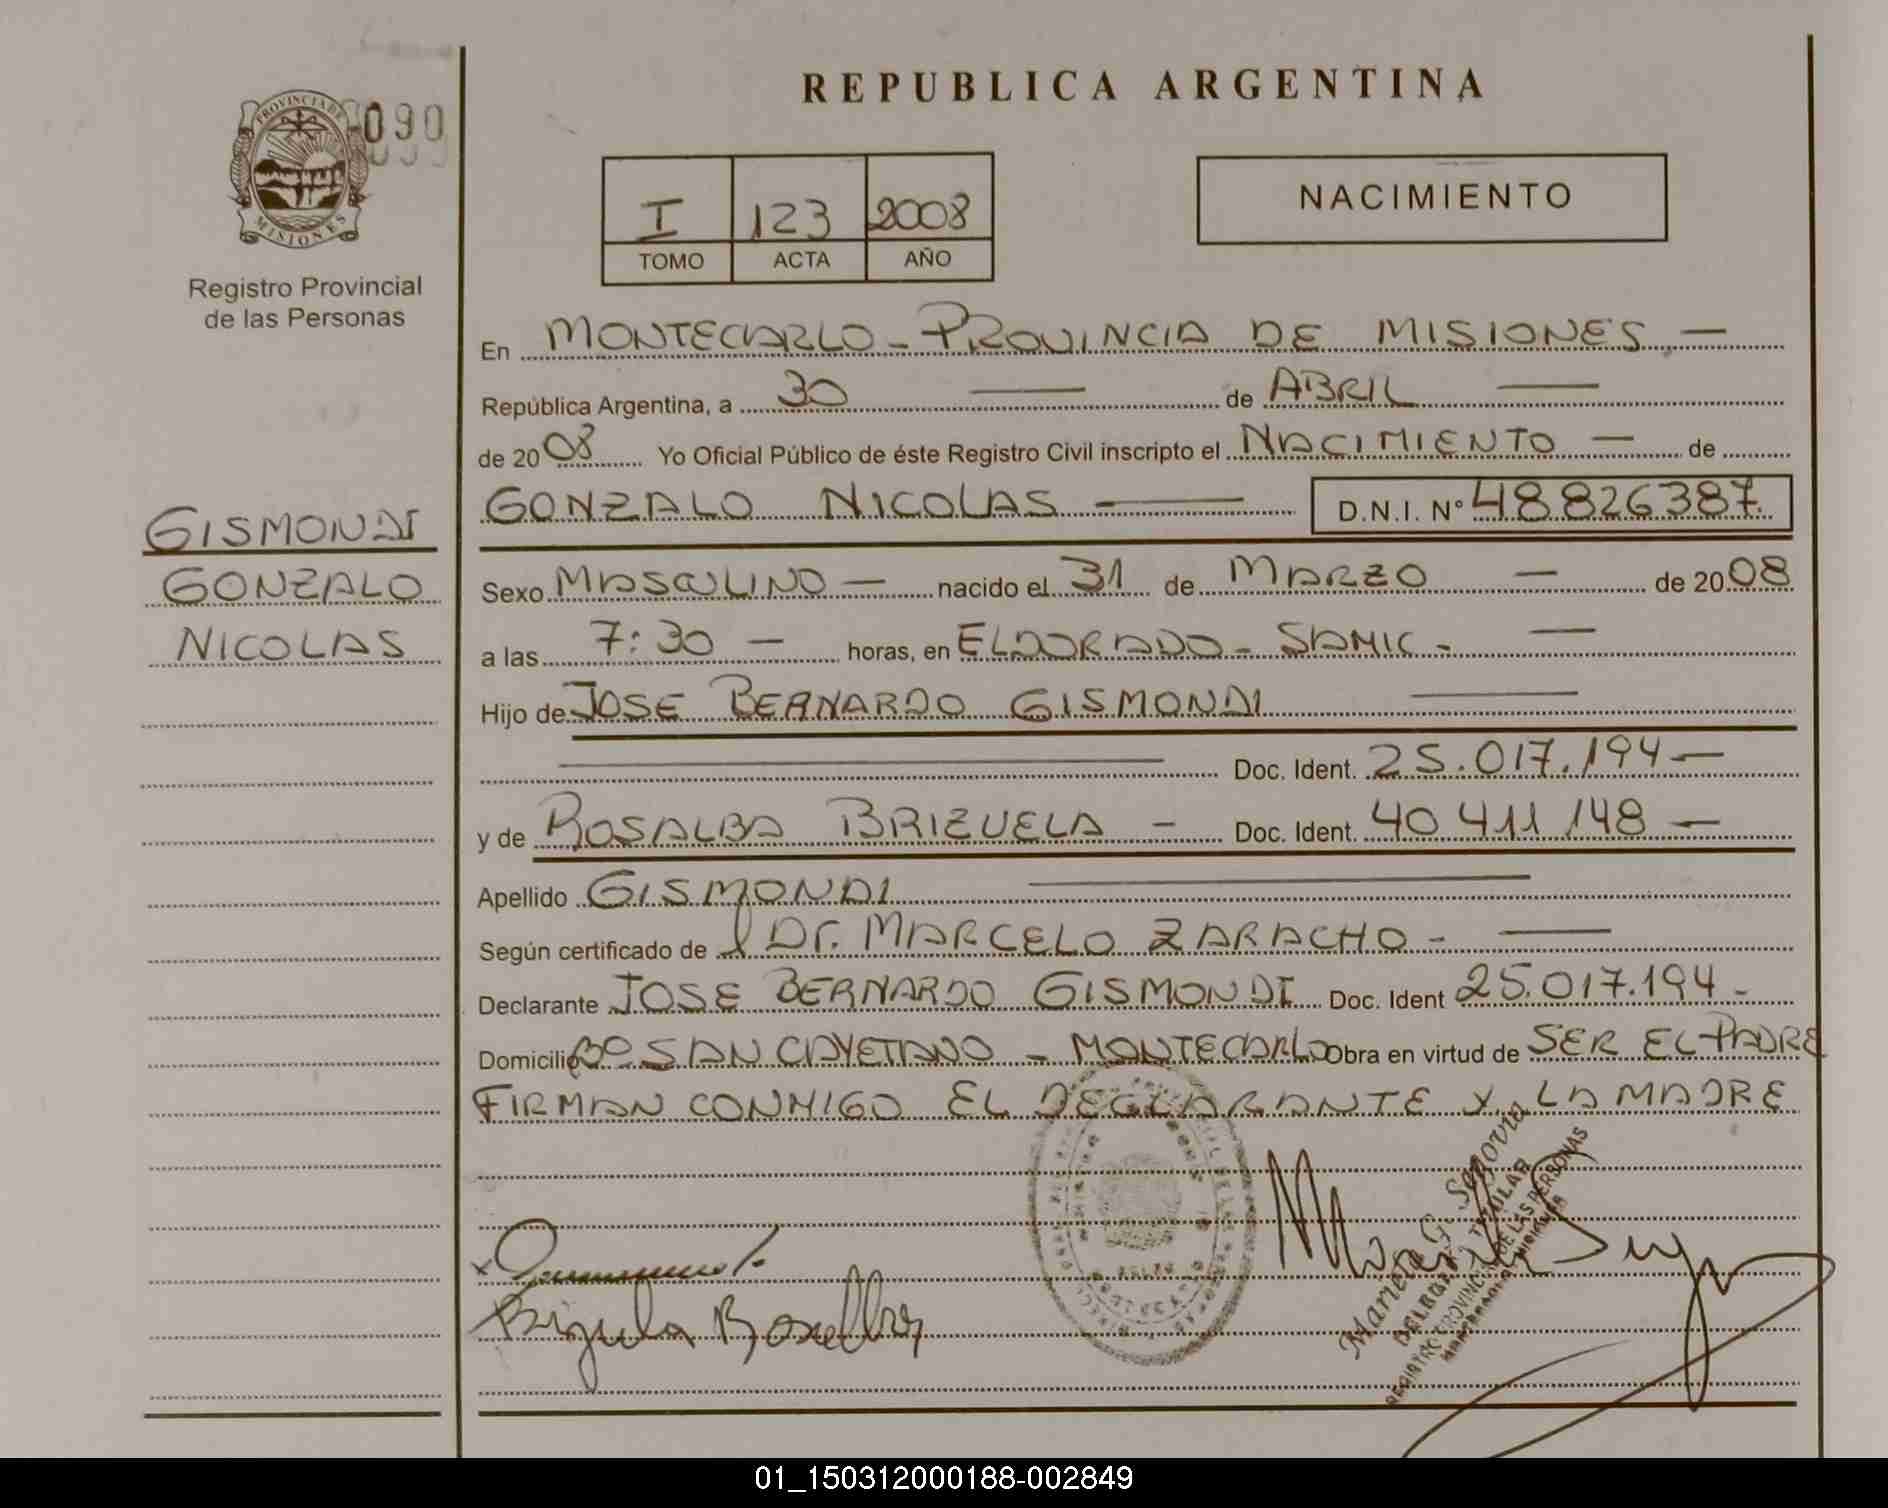 REPUBLICA ARGENTINA
PROVINCIA DE
MISIONES
090
Registro Provincial
de las Personas
I 123 2008
TOMO ACTA AÑO
NACIMIENTO
En MONTECARLO - PROVINCIA DE MISIONES -
República Argentina, a 30 — de ABRIL —
de 2008 Yo Oficial Público de éste Registro Civil inscripto el NACIMIENTO — de
GONZALO NICOLAS — D.N.I. Nº 48826387
GISMONDI
GONZALO
NICOLAS
Sexo MASCULINO — nacido el 31 de MARZO — de 2008
a las 7:30 — horas, en ELDORADO - SAMIC - —
Hijo de JOSE BERNARDO GISMONDI —
— Doc. Ident. 25.017.194 —
y de ROSALBA BRIZUELA — Doc. Ident. 40 411 148 —
Apellido GISMONDI —
Según certificado de Dr. MARCELO ZARACHO - —
Declarante JOSE BERNARDO GISMONDI Doc. Ident 25.017.194 -
Domicilio Bº SAN CAYETANO - MONTECARLO Obra en virtud de SER EL PADRE
FIRMAN CONMIGO EL DECLARANTE Y LA MADRE
Segovia
TITULAR
DE LAS PERSONAS
01_150312000188-002849